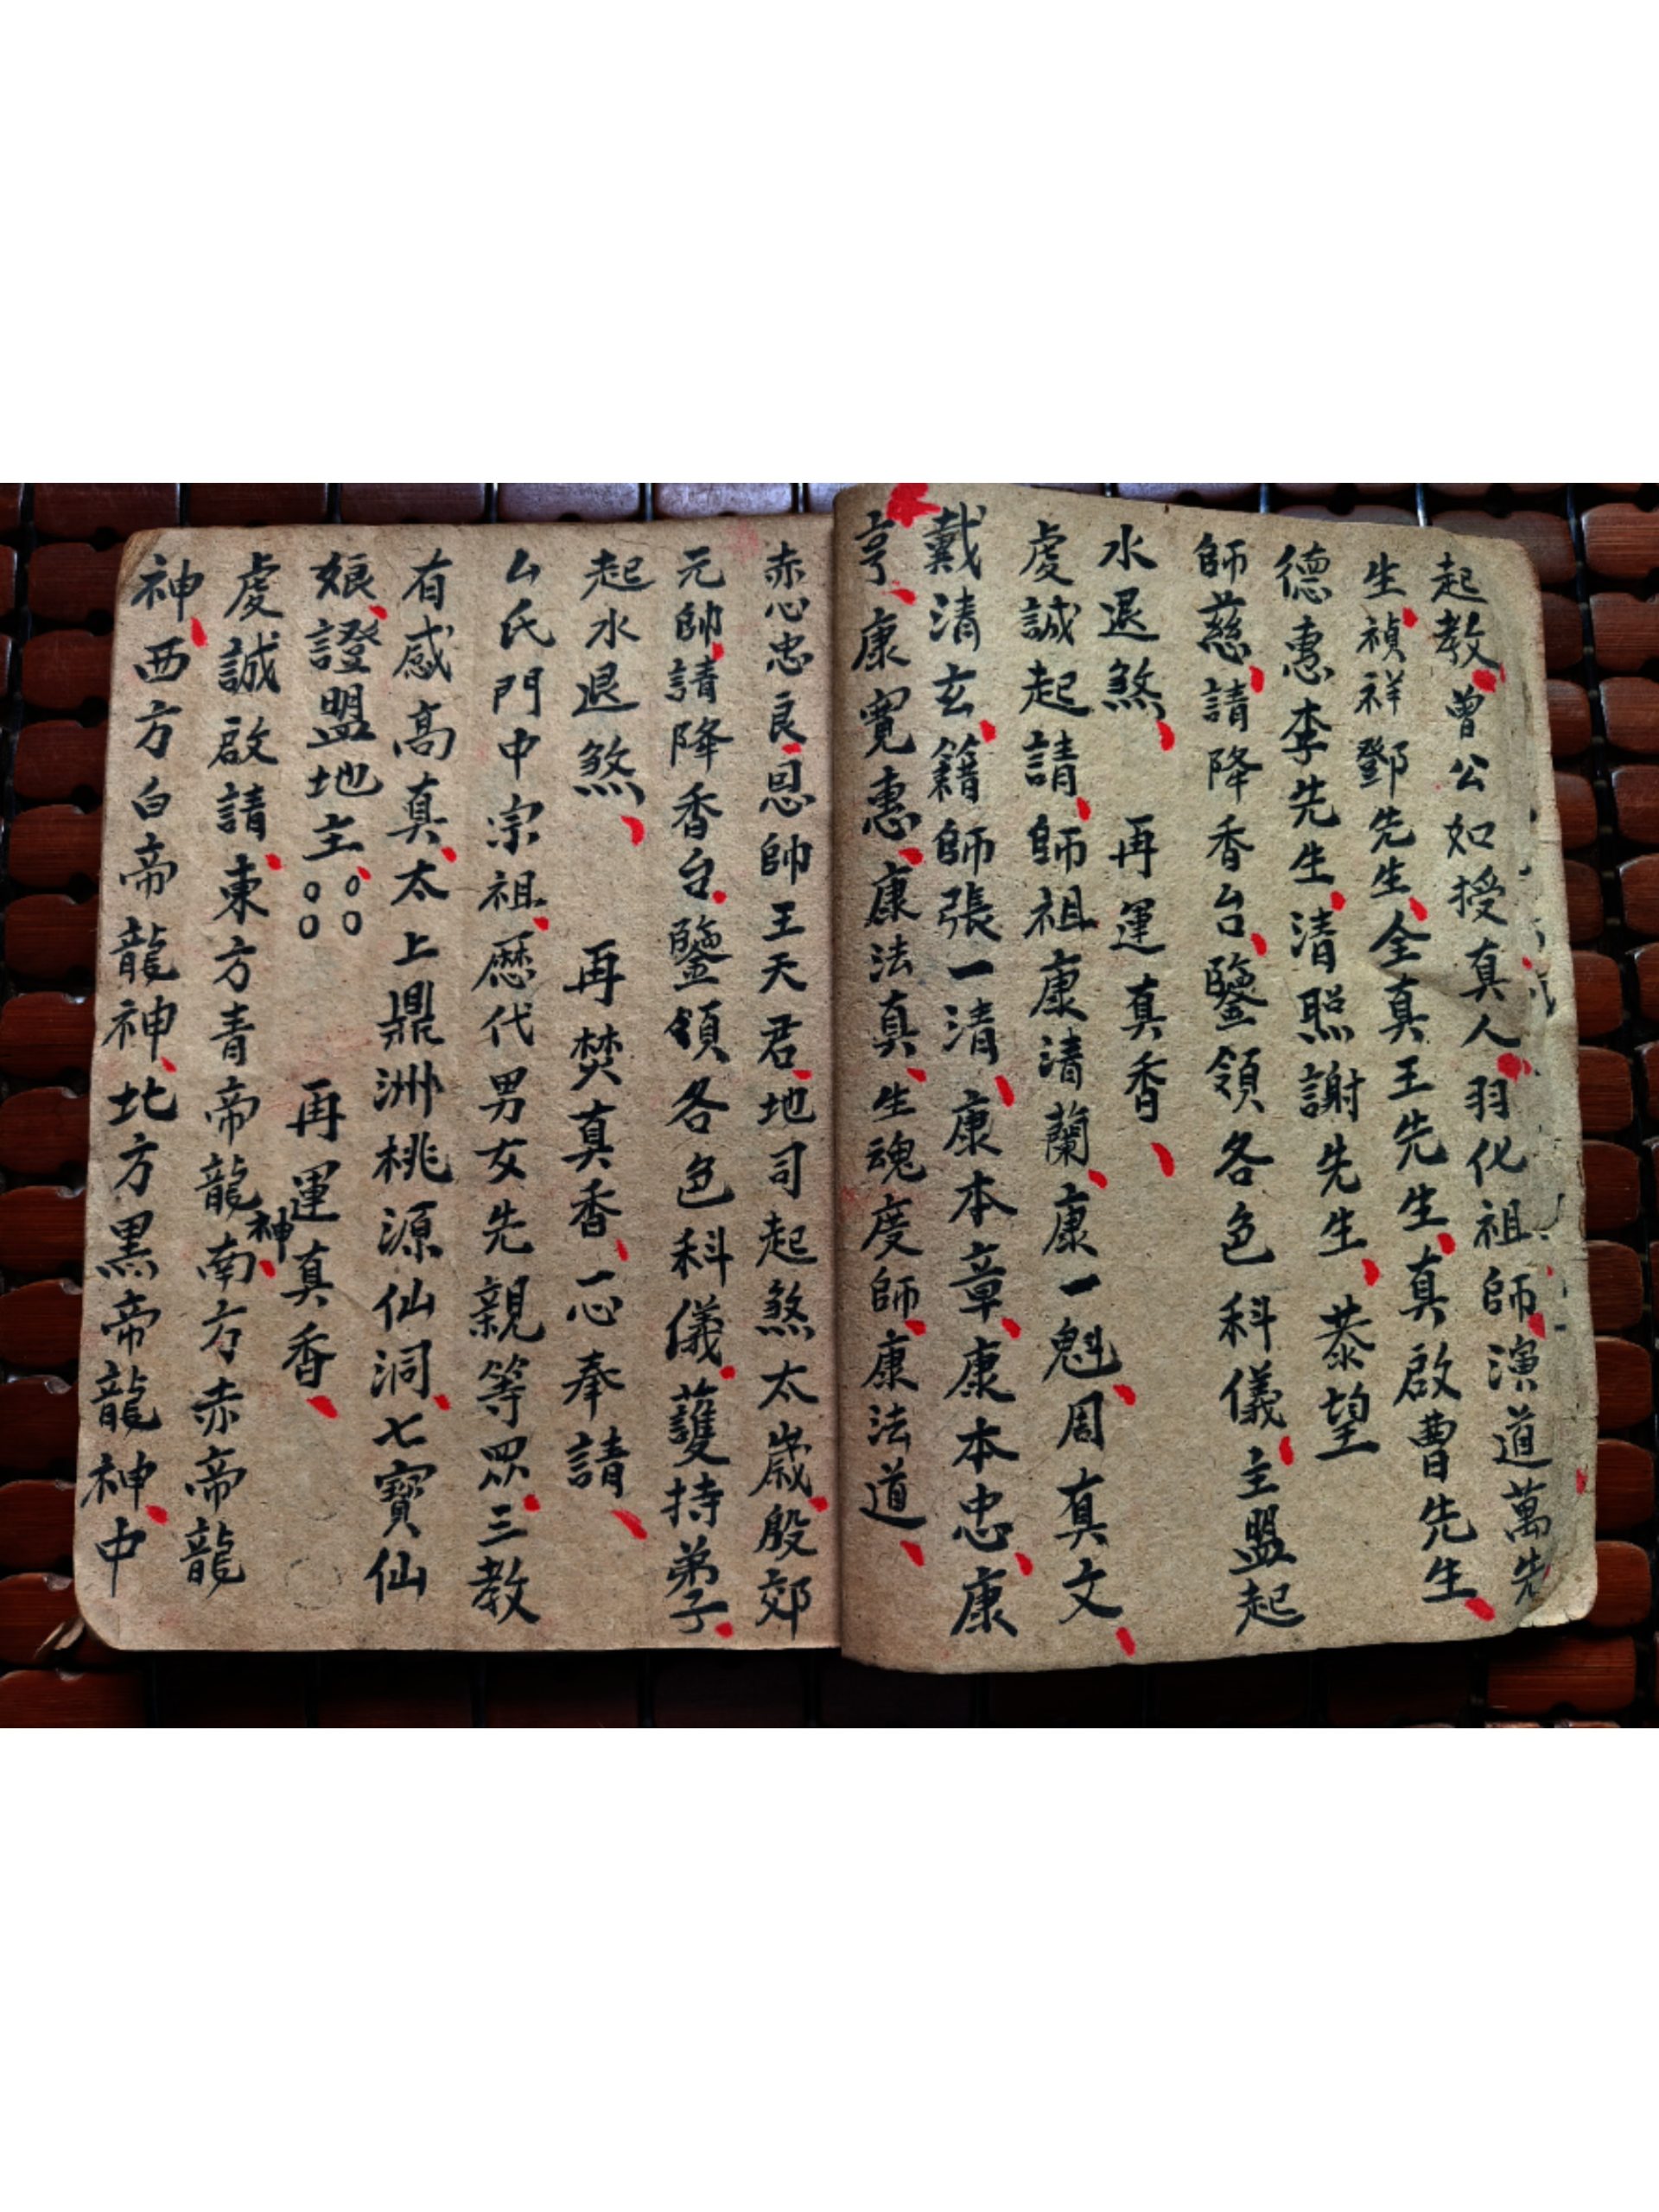 起教曾公如授真人羽化祖師演道萬先
生禎祥鄧先生全真王先生真啟曹先生
德惠李先生清照謝先生恭望
師慈請降香台鑒領各色科儀主盟起
水退煞　再運真香
虔誠起請師祖康清蘭康一魁周真文
戴清玄籍師張一清康本章康本忠康
亨康寬惠康法真生魂度師康法道
赤心忠良恩帥王天君地司起煞太歲殷郊
元帥請降香台鑒領各色科儀護持弟子
起水退煞　再焚真香一心奉請
厶氏門中宗祖歷代男女先親等眾三教
有感高真太上鼎洲桃源仙洞七寶仙
娘證盟地主○○○○　再運真香
虔誠啟請東方青帝龍神南方赤帝龍
神西方白帝龍神北方黑帝龍神中